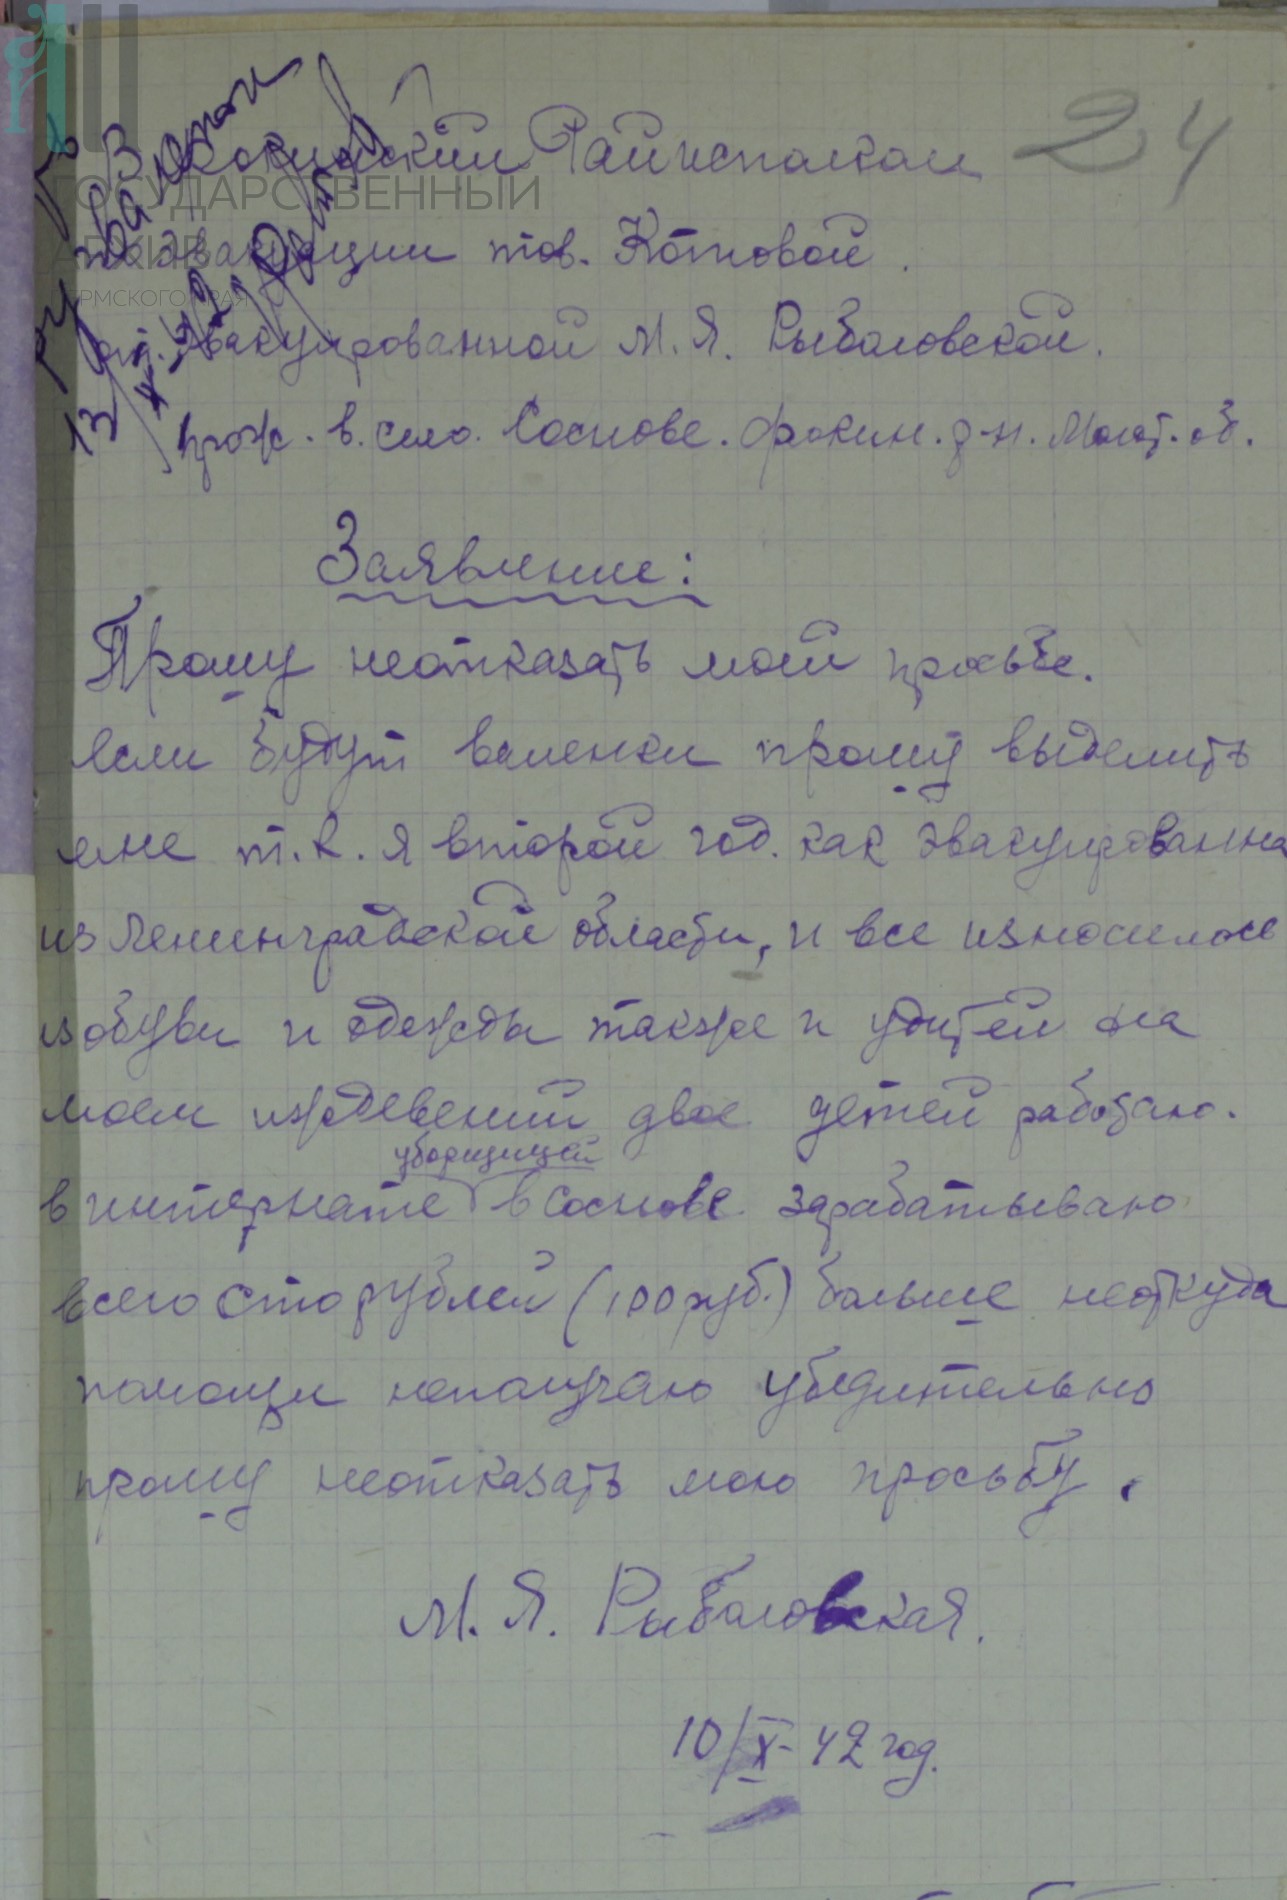 24
В Фокинский Райисполком
по эвакуации тов. Котовой.
от. эвакуированной М. Я. Рыбаловской.
прож. в. село. Соснове. Фокин. р-н. Молот. об.
Заявление:
Прошу неотказать моей просьбе.
если будут валенки прошу выделить
мне т.к. я второй год. как эвакуированна
из Ленинградской области, и все износилось
изобуви и одежды также и удетей на
моем иждевении двое детей работаю.
уборщицей
в интернате в Соснове. зарабатываю
всего сто рублей (100 руб.) больше неоткуда
помощи неполучаю убедительно
прошу неотказать мою просьбу.
М. Я. Рыбаловская.
10/X-42 год.
ГОСУДАРСТВЕННЫЙ
АРХИВ
ПЕРМСКОГО КРАЯ